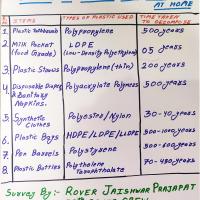 AT HOME
S.NO ITEMS TYPES OF PLASTIC USED TIME TAKEN TO DECOMPOSE
1. Plastic Toothbrush Polypropylene 500 years
2. Milk Packet (Food Grade) LDPE (Low-Density Polyethylene) 05 years
3. Plastic Straws Polypropylene (thin) 200 years
4. Disposable Diapers & Sanitary Napkins. Polyacrylate Polymers 500 years
5. Synthetic Clothes Polyester/Nylon 30-40 years
6. Plastic Bags HDPE/LDPE/LLDPE 500-1000 years
7. Pen Barrels Polystyrene 500-600 years
8. Plastic Bottles Polythelene Terephthalate 70-450 years
Survey By: ROVER JAISHWAR PRAJAPAT